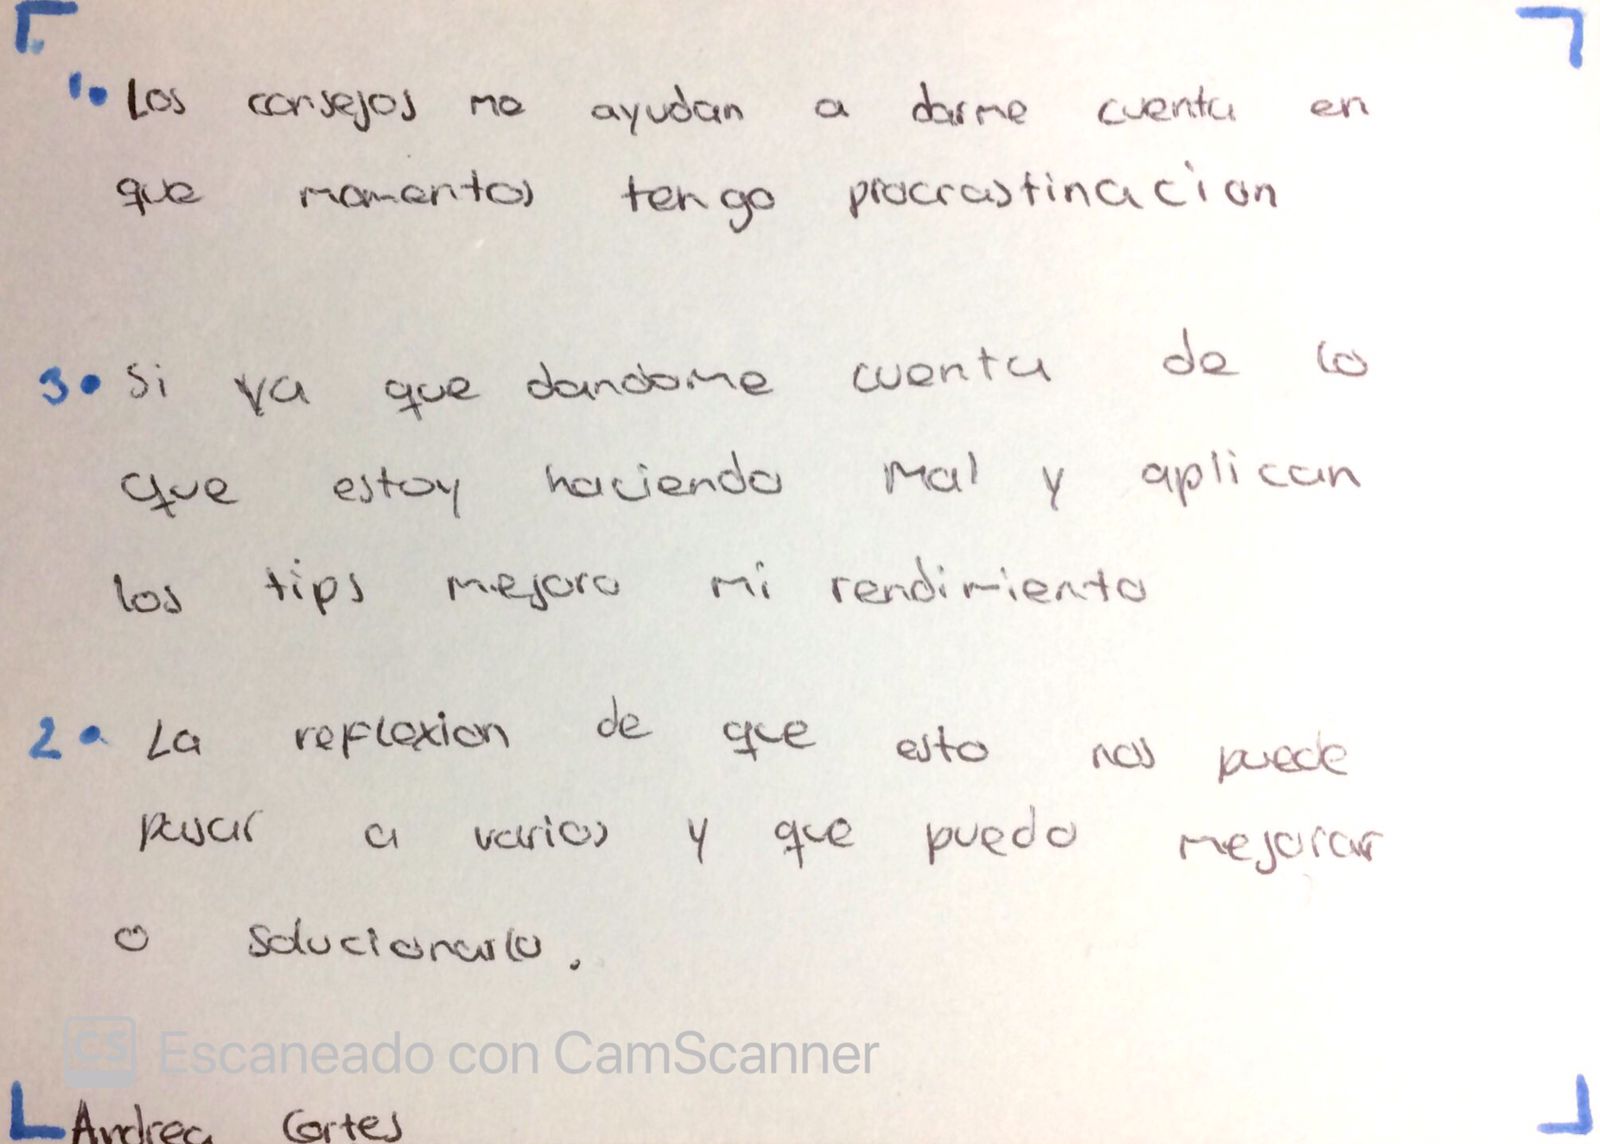 1. Los consejos me ayudan a darme cuenta en
que momentos tengo procrastinacion
3. Si ya que dandome cuenta de lo
que estoy haciendo mal y aplican
los tips mejoro mi rendimiento
2. La reflexion de que esto nos puede
pasar a varios y que puedo mejorar
o solucionarlo.
CS Escaneado con CamScanner
Andrea Cortes